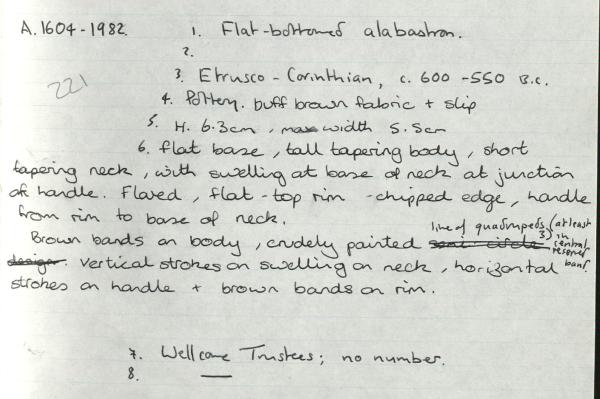 A.1604-1982. 1. Flat-bottomed alabastron.
2.
221
3. Etrusco-Corinthian, c. 600-550 B.C.
4. Pottery. buff brown fabric + slip
5. H. 6.3cm, max width 5.5cm
6. flat base, tall tapering body, short
tapering neck, with swelling at base of neck at junction
of handle. Flared, flat-top rim - chipped edge, handle
from rim to base of neck.
Brown bands on body, crudely painted semi circle line of quadrupeds (at least 3) in central reserved band
design. vertical strokes on swelling on neck, horizontal
strokes on handle + brown bands on rim.
7. Wellcome Trustees; no number.
8. —